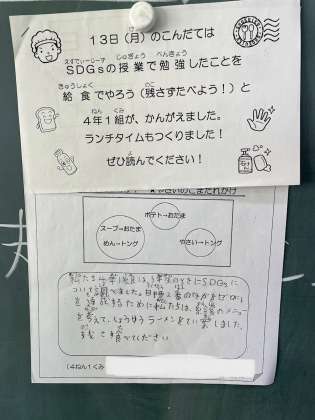 13日(月)のこんだては
SDGsの授業で勉強したことを
給食でやろう(残さずたべよう!)と
4年1組が、かんがえました。
ランチタイムもつくりました!
ぜひ読んでください!
やさいのごまだれかけ
ポテト→おたま
スープ→おたま
めん→トング
やさい→トング
私たち4年1組は、授業のときにSDGsに
ついて調べました。目標2番のきがをゼロに
を達成するために私たちは、給食のメニュー
を考えて、しょうゆラーメンをてい案しました。
残さず食べてください
(4ねん1くみ